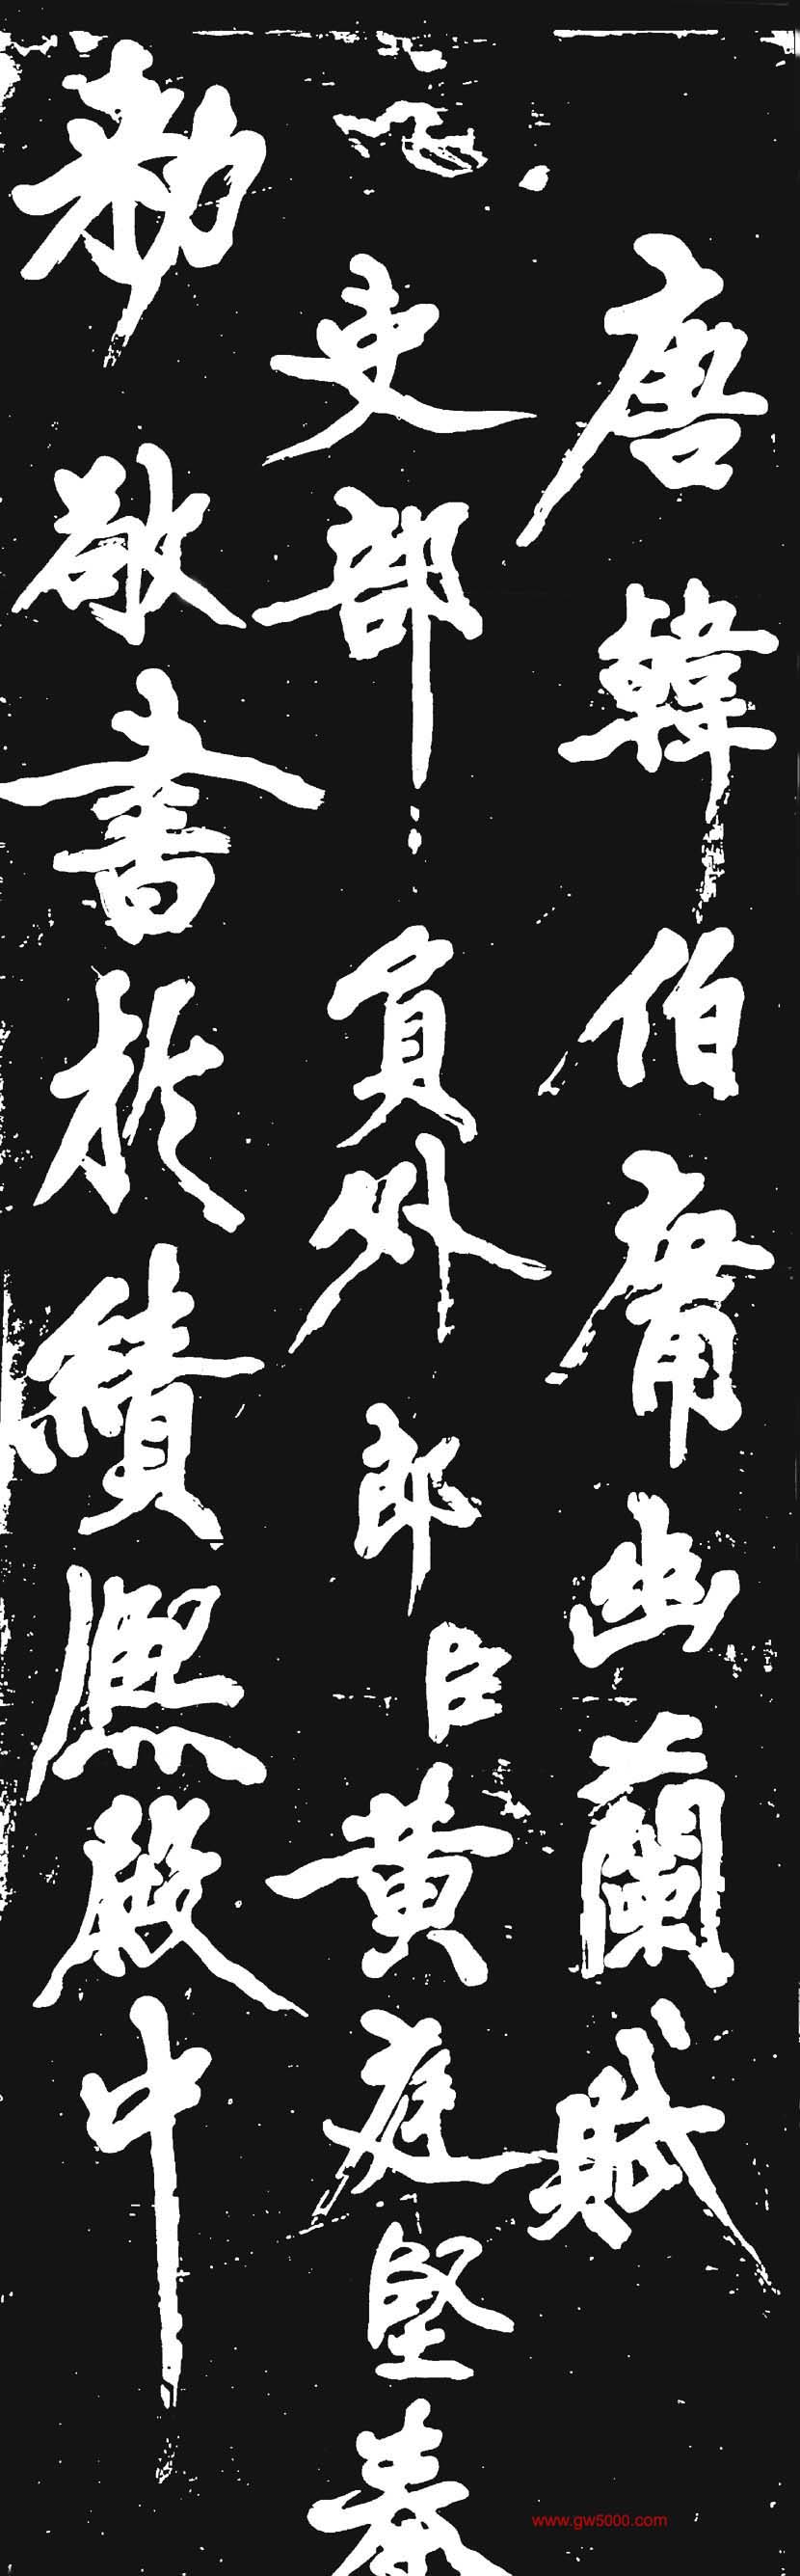 唐韓伯庸幽蘭賦
吏部員外郎臣黄庭堅奉
勑敬書於績熙殿中
www.gw5000.com